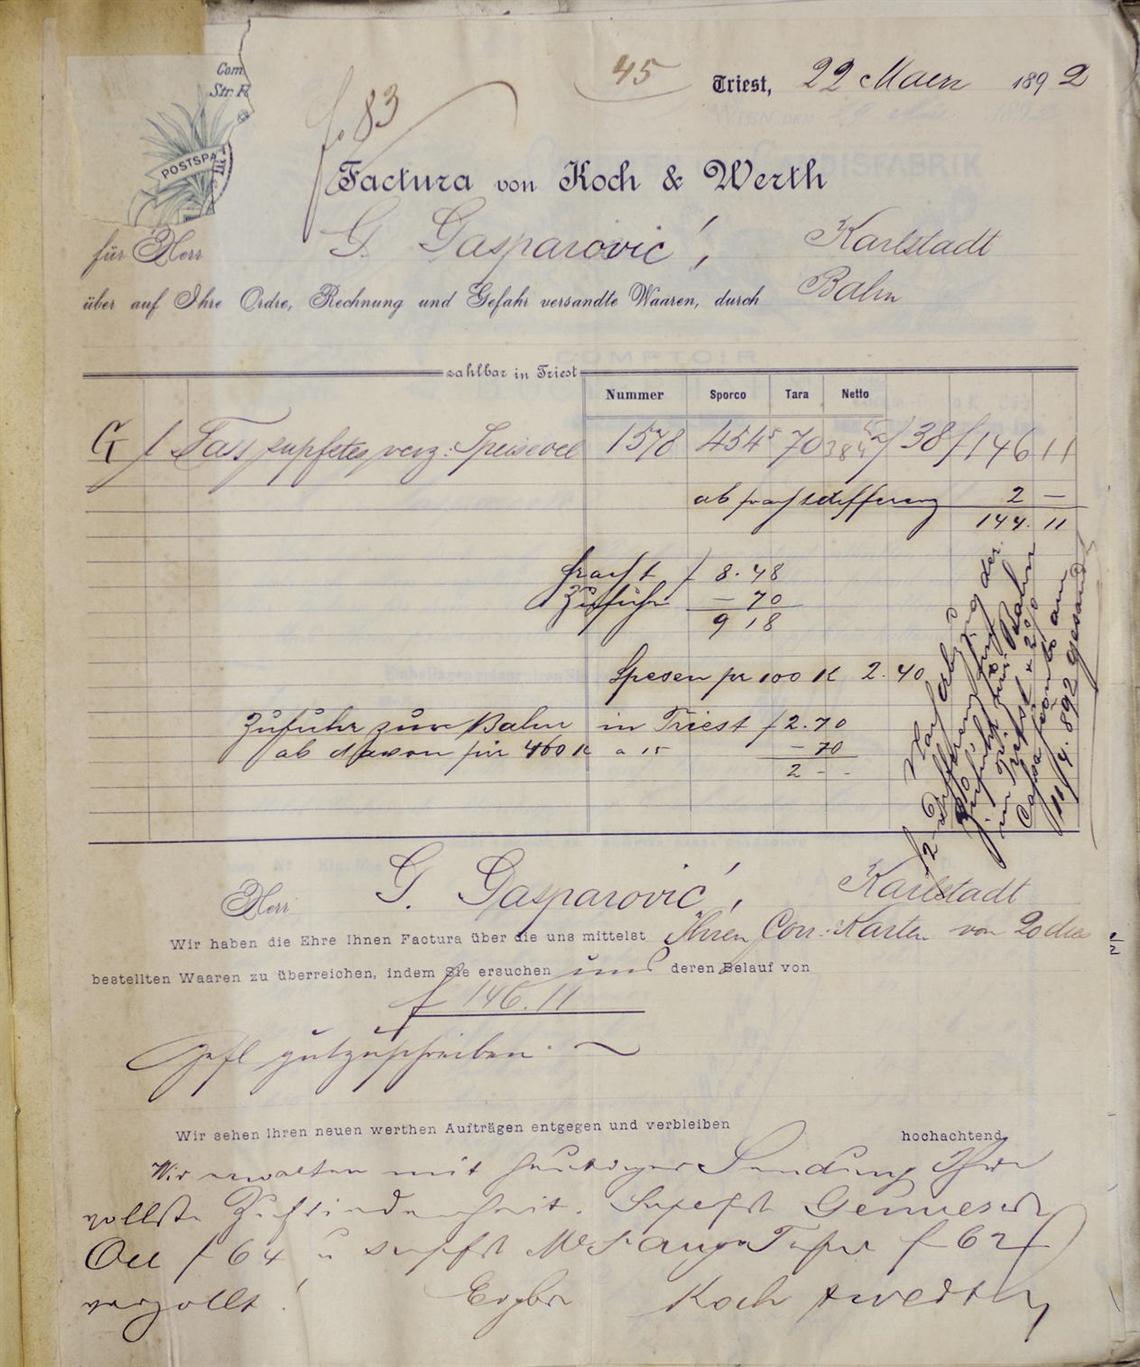 Com
Str. F
POSTSPA
45
fo 83
Triest, 22 Maerz 1892
Factura von Koch & Werth
für Herr G. Gasparović, Karlstadt
über auf Ihre Ordre, Rechnung und Gefahr versandte Waaren, durch Bahn
zahlbar in Triest
Nummer Sporco Tara Netto
G 1 Fass supfstes verz: Speiseoel 1578 454⁵ 70 38 f 146 11
ab frachtdifferenz 2 —
144. 11
fracht f 8.48
Zufuhr — 70
9 18
Spesen pr 100 K 2.40
Zufuhr zur Bahn in Triest f 2.70
ab davon für 460 K a 15 — 70
2 - -
Zufuhr zur Bahn
in Triest 2%
Cassa sconto am
10/4. 892 gesandt
Herr G. Gasparović, Karlstadt
Wir haben die Ehre Ihnen Factura über die uns mittelst Ihren Corr: Karten von 20
bestellten Waaren zu überreichen, indem Sie ersuchen uns deren Belauf von
f 146.11
gefl gutzuschreiben.
Wir sehen Ihren neuen werthen Aufträgen entgegen und verbleiben hochachtend
Wir erwarten mit heutiger Sendung Ihre
vollste Zufriedenheit. Supfst Genueser
Oel f 64 u supfst f 62
verzollt!
Ergbn Koch & Werth